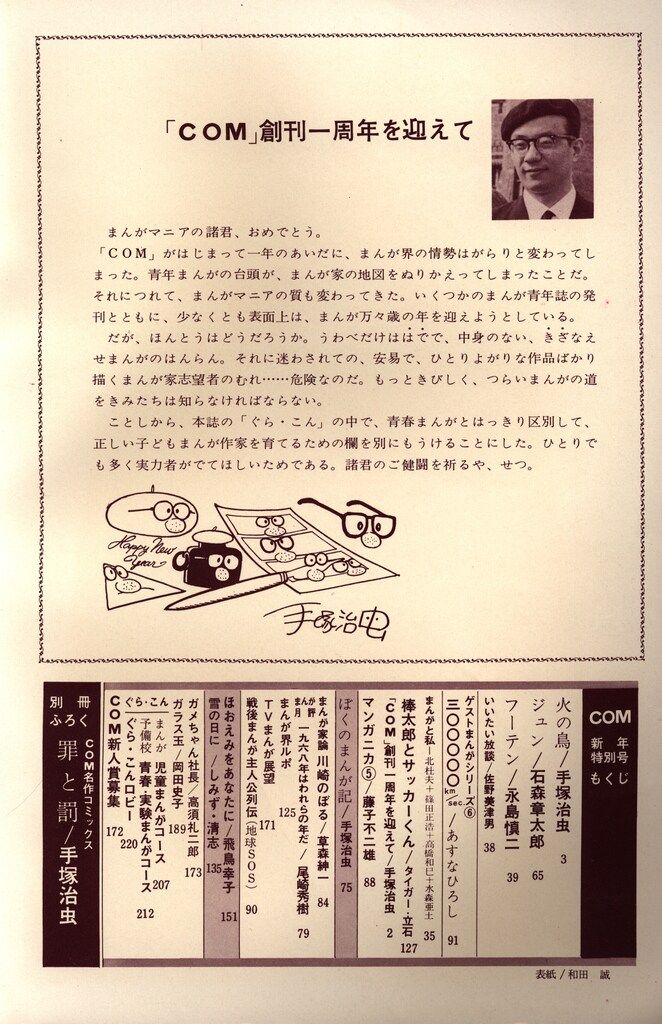 「COM」創刊一周年を迎えて
まんがマニアの諸君、おめでとう。
「COM」がはじまって一年のあいだに、まんが界の情勢はがらりと変わってし
まった。青年まんがの台頭が、まんが家の地図をぬりかえってしまったことだ。
それにつれて、まんがマニアの質も変わってきた。いくつかのまんが青年誌の発
刊とともに、少なくとも表面上は、まんが万々歳の年を迎えようとしている。
だが、ほんとうはどうだろうか。うわべだけははでで、中身のない、きざなえ
せまんがのはんらん。それに迷わされての、安易で、ひとりよがりな作品ばかり
描くまんが家志望者のむれ……危険なのだ。もっときびしく、つらいまんがの道
をきみたちは知らなければならない。
ことしから、本誌の「ぐら・こん」の中で、青春まんがとはっきり区別して、
正しい子どもまんが作家を育てるための欄を別にもうけることにした。ひとりで
も多く実力者がでてほしいためである。諸君のご健闘を祈るや、せつ。
Happy New
Year
手塚治虫
COM
新年
特別号
もくじ
火の鳥/手塚治虫 3
ジュン/石森章太郎 65
フーテン/永島慎二 39
いいたい放談/佐野美津男 38
ゲストまんがシリーズ⑥
三〇〇〇〇〇km/sec./あすなひろし 91
まんがと私—北杜夫+篠田正浩+高橋和巳+水森亜土 35
棒太郎とサッカーくん/タイガー・立石 127
「COM」創刊一周年を迎えて/手塚治虫 2
マンガニカ⑤/藤子不二雄 88
ぼくのまんが記/手塚治虫 75
まんが家論 川崎のぼる/草森紳一 84
まんが月評 一九六八年はわれらの年だ/尾崎秀樹 79
まんが界ルポ 125
TVまんが展望 171
戦後まんが主人公列伝(地球SOS) 90
ほおえみをあなたに/飛鳥幸子 151
雪の日に/しみず・清志 135
ガメちゃん社長/高須礼二郎 173
ガラス玉/岡田史子 189
ぐら・こん まんが予備校 児童まんがコース 207
青春・実験まんがコース 212
ぐら・こんロビー 220
COM新人賞募集 172
別冊
ふろく
COM名作コミックス
罪と罰/手塚治虫
表紙/和田 誠